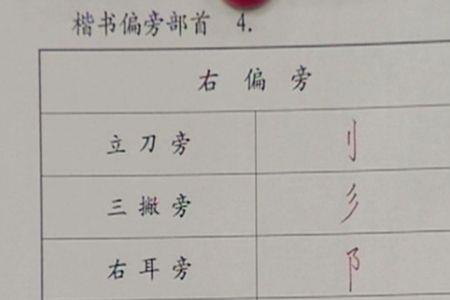 楷书偏旁部首 4.
右偏旁
立刀旁 刂
三撇旁 彡
右耳旁 阝